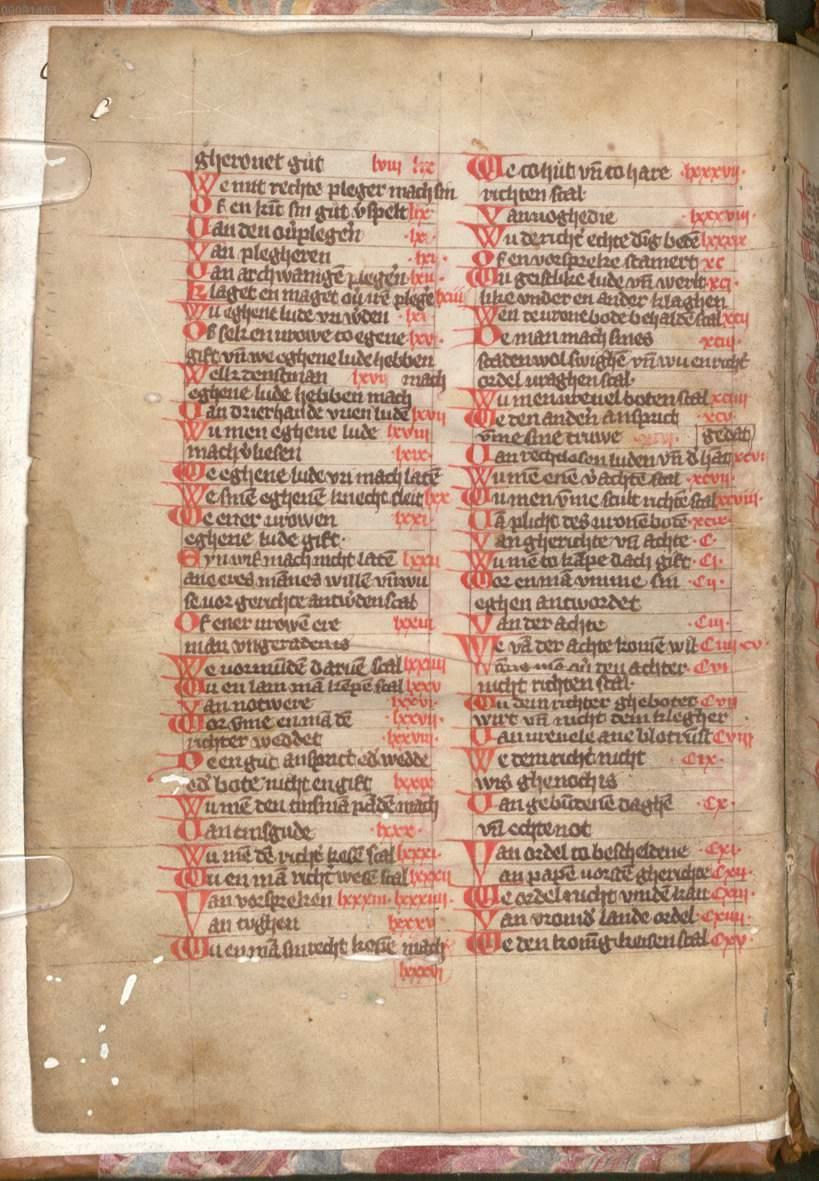 00091403
gherouet gut lviii lix
We mit rechte pleger mach sin
Of en kint sin gut vspelt lix
Van den ouplegen lx
Van plegheren lxi
Van archwanigē plegen lxii
Klaget en maget ouir ē plege lxiii
Wu eghene lude vri wden
Of selk en urowe to egene lxv
gift vn̄ we eghene lude hebben
Welk denstman lxvi mach
eghene lude hebben mach
Van drierhande vrien ludē lxvii
Wu men eghene lude lxviii
mach vliesen lxix
We eghene lude vri mach latē
We sinē eghenē knecht sleit lxx
We ener urowen lxxi
eghene lude gift
Eyn wif mach nicht latē lxxii
ane eres mānes willē vn̄ wu
se vor gerichte antwden scal
Of ener urowen ere lxxiii
man vngerade is
We uormūdē daruē scal lxxiiii
Wu en lam mā kēpē scal lxxv
Van notwere lxxvi
Wor vme en mā dē lxxvii
richter weddet lxxviii
De en gut ansprict ed wedde
ed bote nicht en gift lxxix
Wu mē den tinsmā pādē mach
Van tinsgude lxxx
Wu mē dē richt kesē scal lxxxi
Wu en mā richt wesē scal lxxxii
Van vorspreken lxxxiii lxxxiiii
Van tvghen lxxxv
Wu en mā sin recht kesne mach
lxxxvi
We to hut vn̄ to hare lxxxvii
richten scal
Van uoghedie lxxxviii
Wu de richt echte dīg bedē lxxxix
Of en vorspreke stamert xc
Wu geistlike lude vn̄ werlt xci
like vnder en ander klaghen
Wen de urone bode behaldē scal xcii
De man mach sines xciii
staden wol swighē vn̄ wu en richt
ordel uraghen scal
Wu men ureuel boten scal xciiii
We den anden ansprict xcv
vme sine truwe xcvi gedan
Van rechtlosen luden vn̄ d hat xcvi
Wu mē enē vachtē scal xcvii
Wu men vme scult richtē scal xcviii
Vā plicht des uronē bodē xcix
Van gherichte vn̄ achte c
Wu mē to kāpe dach gift ci
Wor en mā vmme sin cii
eghen antwordet
Van der achte ciii
We vā der achte komē wil ciiii cv
mā ou den achter cvi
nicht richten scal
Wu dem richter ghebotet cvii
wirt vn̄ nicht dem klegher
Van ureuele ane blotrust cviii
We dem richt nicht cix
wis ghenoch is
Van gebūdenē daghē cx
vn̄ echtenot
Van ordel to bescheldene cxi
Van papē uorstē gherichte cxii
We ordel nicht vinden kan cxiii
Van vromd lande ordel cxiiii
We den konīg keisen scal cxv